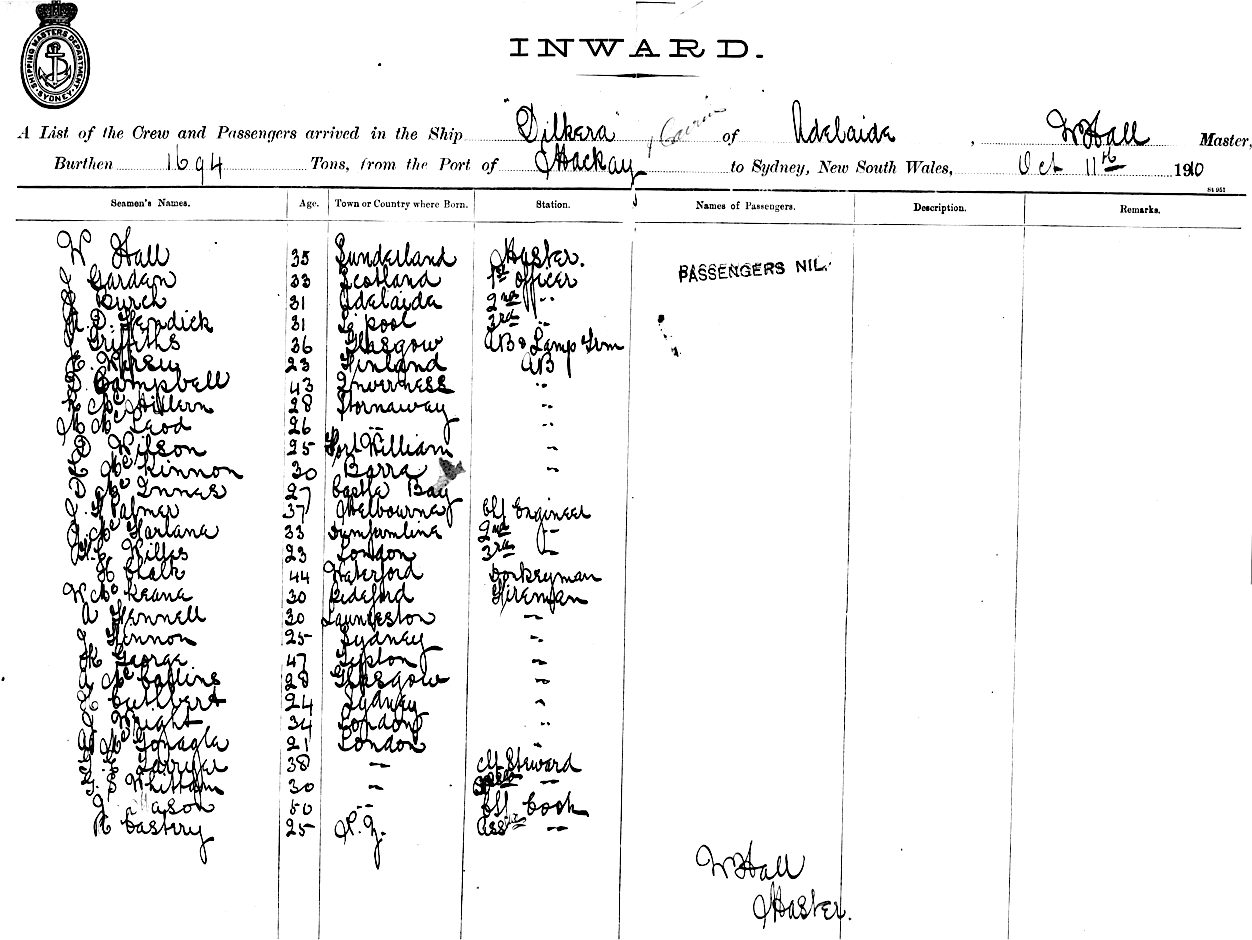 SHIPPING MASTERS DEPARTMENT. SYDNEY.
INWARD.
A List of the Crew and Passengers arrived in the Ship "Dilkera" of Adelaide, W Hall Master,
Burthen 1694 Tons, from the Port of Mackay to Sydney, New South Wales, Oct 11th 1910
S4 951
Seamen's Names. Age. Town or Country where Born. Station. Names of Passengers. Description. Remarks.
W Hall 35 Sunderland Master.
PASSENGERS NIL.
Garden 33 Scotland 1st Officer
Burch 31 Adelaide 2nd "
D. Kendick 31 L'pool 3rd "
Griffiths 36 Glasgow AB & Lamp Trm
23 Finland AB
D Campbell 43 Inverness "
28 Stornaway "
Mc Leod 26 " "
D Wilson 25 Fort William "
Mc Kinnon 30 Barra "
D Mc Innes 27 Castle Bay
J Palmer 37 Melbourne Chf Engineer
Mc Farlane 33 Dumfermline 2nd "
23 London 3rd "
44 Waterford Donkeyman
W Mc Keane 30 Bideford Fireman
A Fennell 30 Launceston "
J Lennon 25 Sydney "
George 47 Tipton "
A Mc Collins 28 Glasgow "
Cuthbert 24 Sydney "
J Wright 34 London "
Mc Gonagle 21 London "
38 " Chf Steward
G. S Whittam 30 " "
J Mason 50 " Chf Cook
R Castery 25 N.Z. Asst "
W Hall
Master.